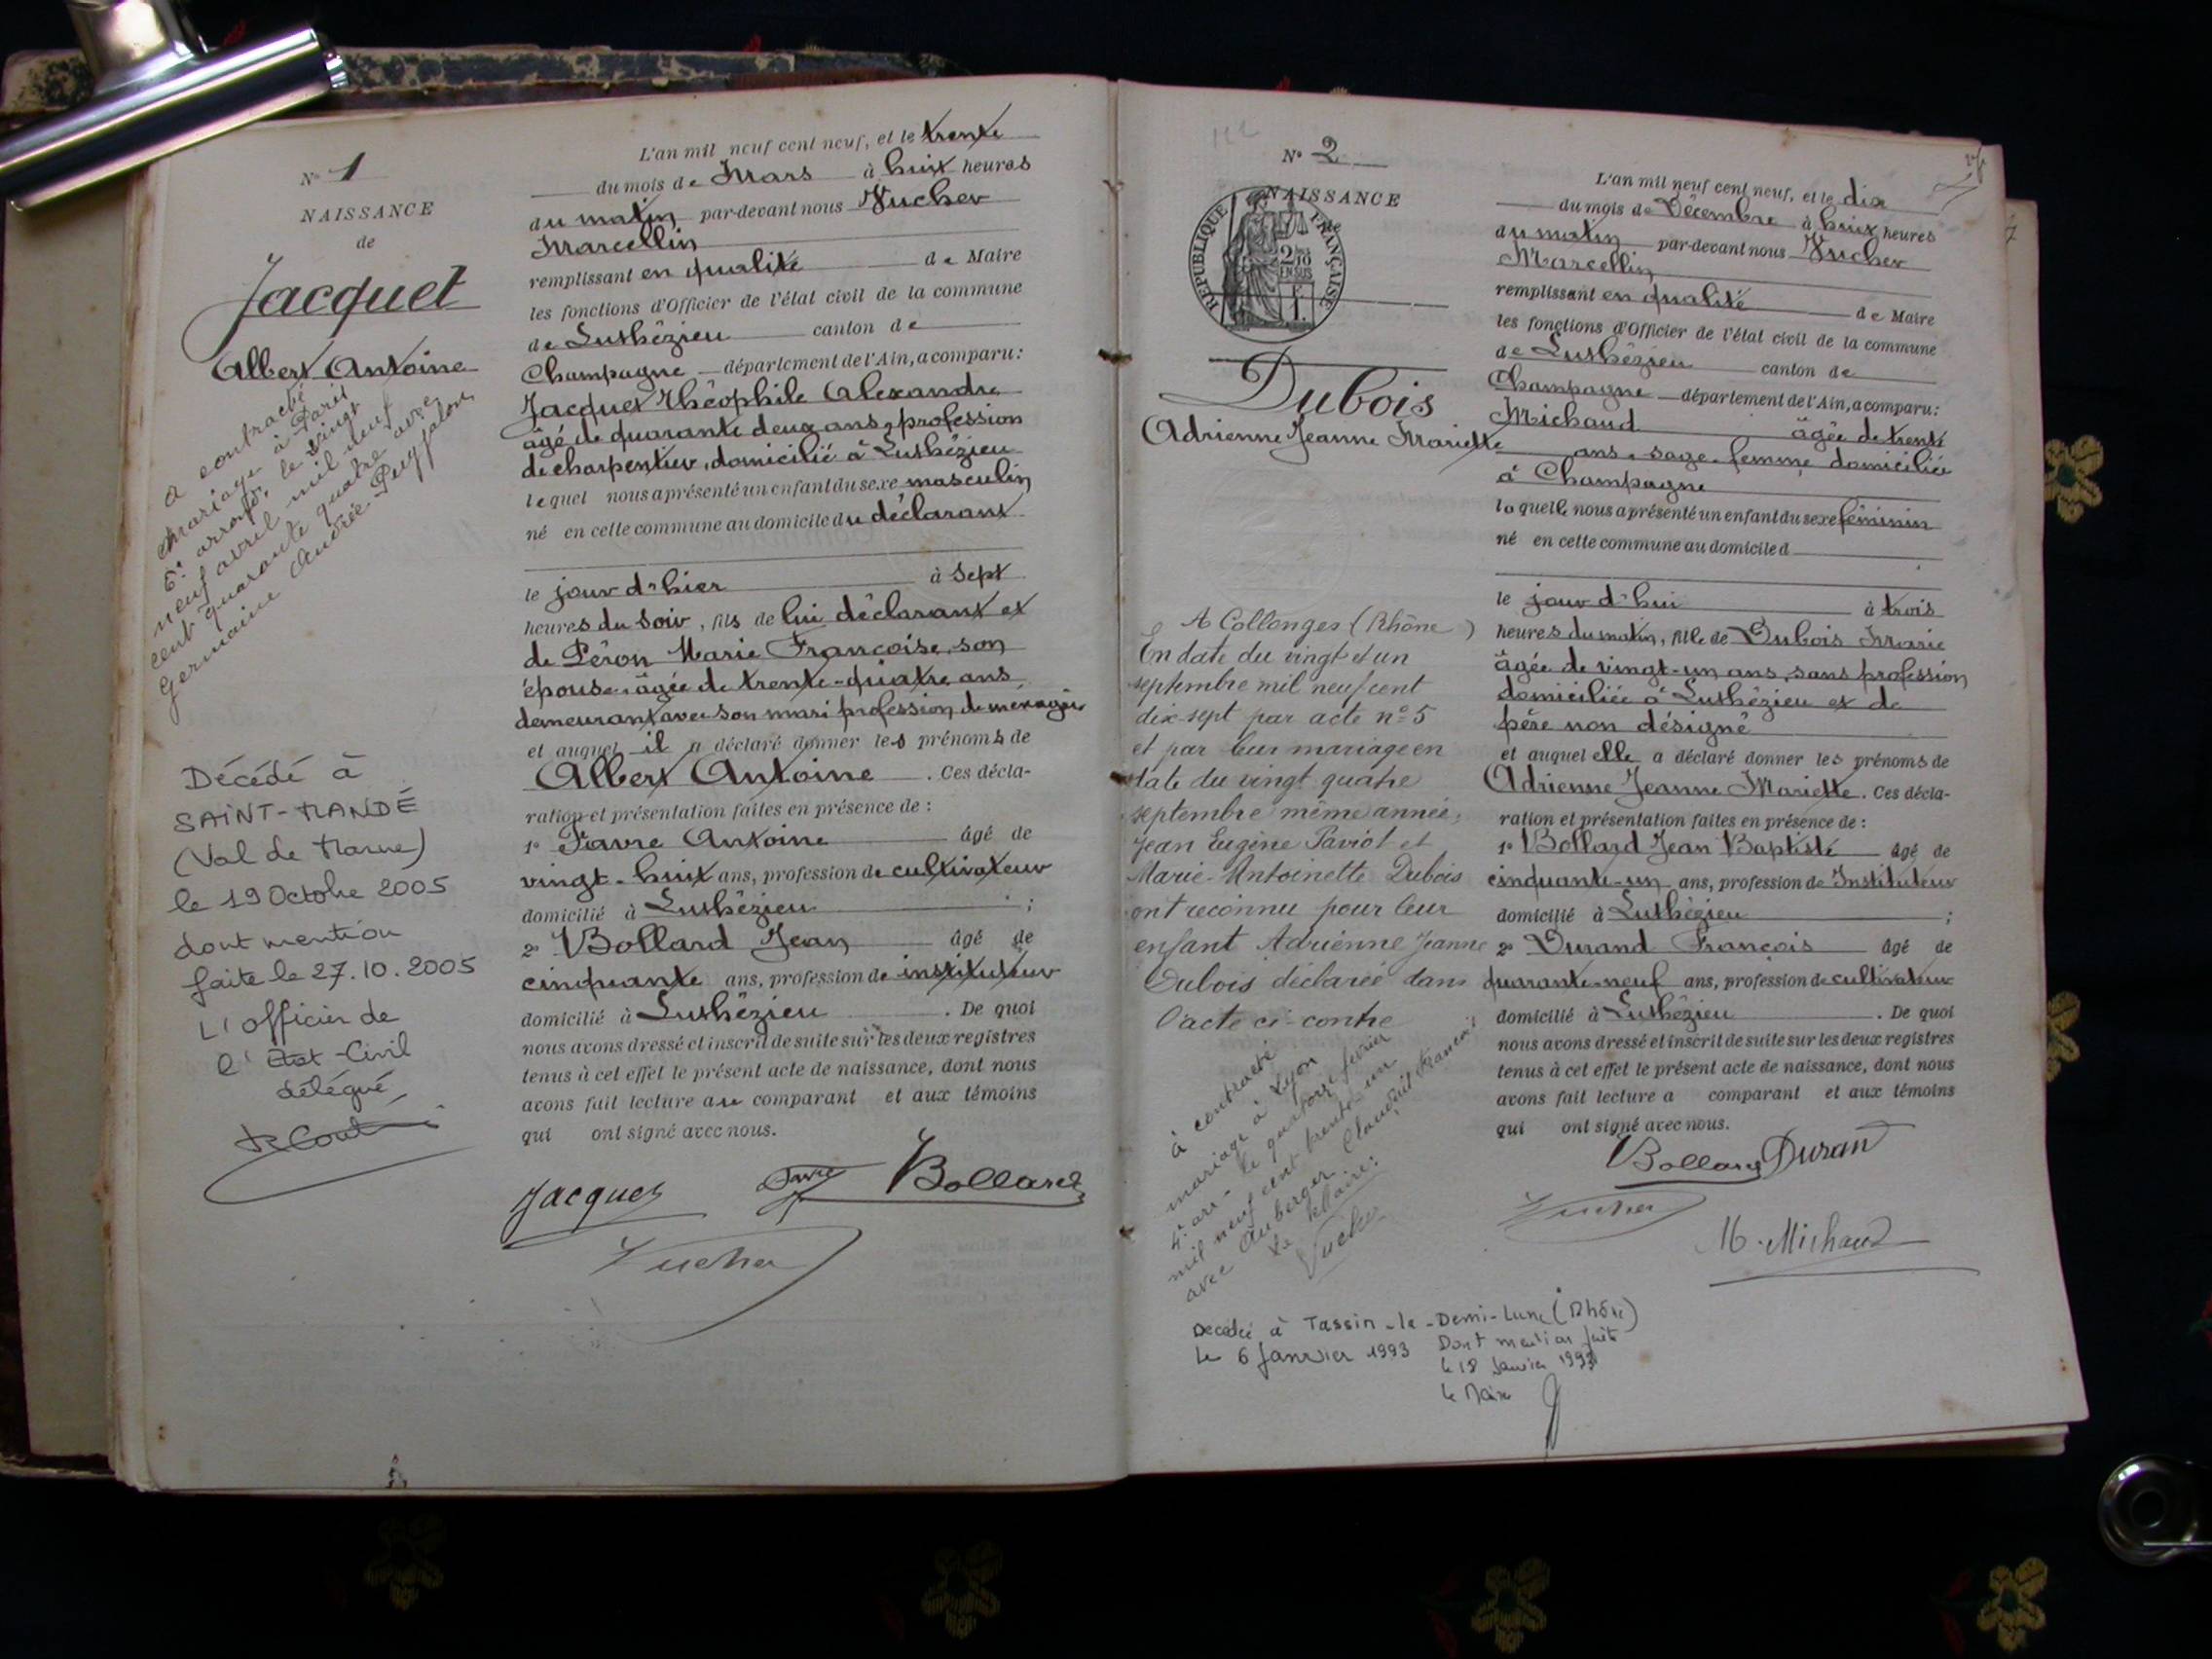 N° 1
NAISSANCE
de
Jacquet
Albert Antoine
a contracté
mariage à Paris
6e arrond. le vingt
neuf avril mil neuf
cent quarante quatre avec
Germaine Andrée
Décédé à
SAINT-MANDÉ
(Val de Marne)
le 19 Octobre 2005
dont mention
faite le 27.10.2005
L'officier de
l'Etat-Civil
délégué,
L'an mil neuf cent neuf, et le trente
du mois de Mars à huit heures
du matin par-devant nous Vucher
Marcellin
remplissant en qualité de Maire
les fonctions d'Officier de l'état civil de la commune
de Luthézieu canton de
Champagne département de l'Ain, a comparu :
Jacquet Théophile Alexandre
âgé de quarante deux ans, profession
de charpentier, domicilié à Luthézieu
lequel nous a présenté un enfant du sexe masculin
né en cette commune au domicile du déclarant
le jour d'hier à sept
heures du soir, fils de lui déclarant et
de Péron Marie Françoise, son
épouse, âgée de trente-quatre ans,
demeurant avec son mari profession de ménagère
et auquel il a déclaré donner les prénoms de
Albert Antoine. Ces décla-
ration et présentation faites en présence de :
1° Favre Antoine âgé de
vingt-huit ans, profession de cultivateur
domicilié à Luthézieu ;
2° Bollard Jean âgé de
cinquante ans, profession de instituteur
domicilié à Luthézieu. De quoi
nous avons dressé et inscrit de suite sur les deux registres
tenus à cet effet le présent acte de naissance, dont nous
avons fait lecture au comparant et aux témoins
qui ont signé avec nous.
Jacquet Favre Bollard
Vucher
N° 2
NAISSANCE
de
REPUBLIQUE FRANÇAISE
2/10
EN SUS
Dubois
Adrienne Jeanne Mariette
A Collonges (Rhône)
En date du vingt et un
septembre mil neuf cent
dix sept par acte n° 5
et par leur mariage en
date du vingt quatre
septembre même année,
Jean Eugène Paviot et
Marie-Antoinette Dubois
ont reconnu pour leur
enfant Adrienne Jeanne
Dubois déclarée dans
l'acte ci-contre
à contracté
mariage à Lyon
4e arr- le quatorze février
mil neuf cent trente un
avec Auberger Claudius François
Le Maire:
Vucher
Décédée à Tassin-la-Demi-Lune (Rhône)
le 6 Janvier 1993 Dont mention faite
le 18 Janvier 1993
le Maire
L'an mil neuf cent neuf, et le dix
du mois de Décembre à huit heures
du matin par-devant nous Vucher
Marcellin
remplissant en qualité de Maire
les fonctions d'Officier de l'état civil de la commune
de Luthézieu canton de
Champagne département de l'Ain, a comparu :
Michaud âgée de trente
ans, sage-femme domiciliée
à Champagne
laquelle nous a présenté un enfant du sexe féminin
né en cette commune au domicile d
le jour d'hui à trois
heures du matin, fille de Dubois Marie
âgée de vingt-un ans, sans profession
domiciliée à Luthézieu et de
père non désigné
et auquel elle a déclaré donner les prénoms de
Adrienne Jeanne Mariette. Ces décla-
ration et présentation faites en présence de :
1° Bollard Jean Baptiste âgé de
cinquante-un ans, profession de Instituteur
domicilié à Luthézieu ;
2° Durand François âgé de
quarante-neuf ans, profession de cultivateur
domicilié à Luthézieu. De quoi
nous avons dressé et inscrit de suite sur les deux registres
tenus à cet effet le présent acte de naissance, dont nous
avons fait lecture a comparant et aux témoins
qui ont signé avec nous.
Bollard Duran
Vucher
M. Michaud